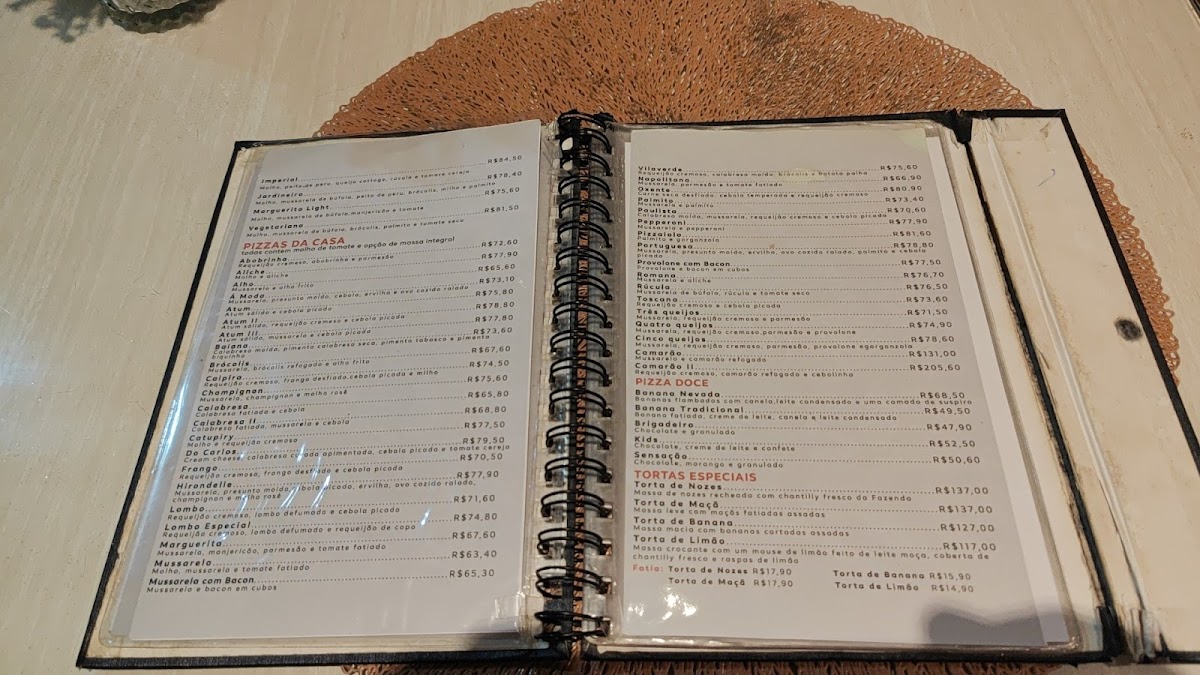 Imperial R$84,50
Molho, peito de peru, queijo cottage, rúcula e tomate cereja
Jardineira R$78,40
Molho, mussarela de búfala, peito de peru, brócolis, milho e palmito
Marguerita Light R$75,60
Molho, mussarela de búfala,manjericão e tomate
Vegetariana R$81,50
Molho, mussarela de búfala, brócolis, palmito e tomate seco
PIZZAS DA CASA
todas contem molho de tomate e opção de massa integral
Abobrinha R$72,60
Requeijão cremoso, abobrinha e parmesão
Aliche R$77,90
Molho e aliche
Alho R$65,60
Mussarela e alho frito
À Moda R$73,10
Mussarela, presunto moído, cebola, ervilha e ovo cozido ralado
Atum R$75,80
Atum sólido e cebola picada
Atum II R$78,80
Atum sólido, requeijão cremoso e cebola picada
Atum III R$77,80
Atum sólido, mussarela e cebola picada
Baiana R$73,60
Calabresa moída, pimenta calabresa seca, pimenta tabasco e pimenta
biquinho
Brócolis R$67,60
Mussarela, brócolis refogado e alho frito
Caipira R$74,50
Requeijão cremoso, frango desfiado,cebola picada e milho
Champignon R$75,60
Mussarela, champignon e molho rosê
Calabresa R$65,80
Calabresa fatiada e cebola
Calabresa II R$68,80
Calabresa fatiada, mussarela e cebola
Catupiry R$77,50
Molho e requeijão cremoso
Do Carlos R$79,50
Cream cheese, calabresa picada apimentada, cebola picada e tomate cereja
Frango R$70,50
Requeijão cremoso, frango desfiado e cebola picada
Hirondelle R$77,90
Mussarela, presunto moído, cebola picada, ervilha, ovo cozido ralado,
champignon e molho rosê
Lombo R$71,60
Requeijão cremoso, lombo defumado e cebola picada
Lombo Especial R$74,80
Mussarela, lombo defumado e requeijão de copo
Marguerita R$67,60
Mussarela, manjericão, parmesão e tomate fatiado
Mussarela R$63,40
Molho, mussarela e tomate fatiado
Mussarela com Bacon R$65,30
Mussarela e bacon em cubos
Vilaverde R$75,60
Requeijão cremoso, calabresa moída, brócolis e batata palha
Napolitana R$66,90
Mussarela, parmesão e tomate fatiado
Oxente R$80,90
Carne seca desfiada, cebola temperada e requeijão cremoso
Palmito R$73,40
Mussarela e palmito
Paulista R$70,60
Calabresa moída, mussarela, requeijão cremoso e cebola picada
Pepperoni R$77,90
Mussarela e pepperoni
Pizzaiola R$81,60
Palmito e gorgonzola
Portuguesa R$78,80
Mussarela, presunto moído, ervilha, ovo cozido ralado, palmito e cebola
picada
Provolone com Bacon R$77,50
Provolone e bacon em cubos
Romana R$76,70
Mussarela e aliche
Rúcula R$76,50
Mussarela de búfala, rúcula e tomate seco
Toscana R$73,60
Requeijão cremoso e cebola picada
Três queijos R$71,50
Mussarela, requeijão cremoso e parmesão
Quatro queijos R$74,90
Mussarela, requeijão cremoso,parmesão e provolone
Cinco queijos R$78,60
Mussarela, requeijão cremoso, parmesão, provolone egorgonzola
Camarão R$131,00
Mussarela e camarão refogado
Camarão II R$205,60
Requeijão cremoso, camarão refogado e cebolinha
PIZZA DOCE
Banana Nevada R$68,50
Bananas flambadas com canela,leite condensado e uma camada de suspiro
Banana Tradicional R$49,50
Banana fatiada, creme de leite, canela e leite condensado
Brigadeiro R$47,90
Chocolate e granulado
Kids R$52,50
Chocolate, creme de leite e confete
Sensação R$50,60
Chocolate, morango e granulado
TORTAS ESPECIAIS
Torta de Nozes R$137,00
Massa de nozes recheada com chantilly fresco da Fazenda
Torta de Maçã R$137,00
Massa leve com maçãs fatiadas assadas
Torta de Banana R$127,00
Massa macia com bananas cortadas assadas
Torta de Limão R$117,00
Massa crocante com um mousse de limão feito de leite moça, coberta de
chantilly fresco e raspas de limão
Fatia: Torta de Nozes R$17,90 Torta de Banana R$15,90
Torta de Maçã R$17,90 Torta de Limão R$14,90